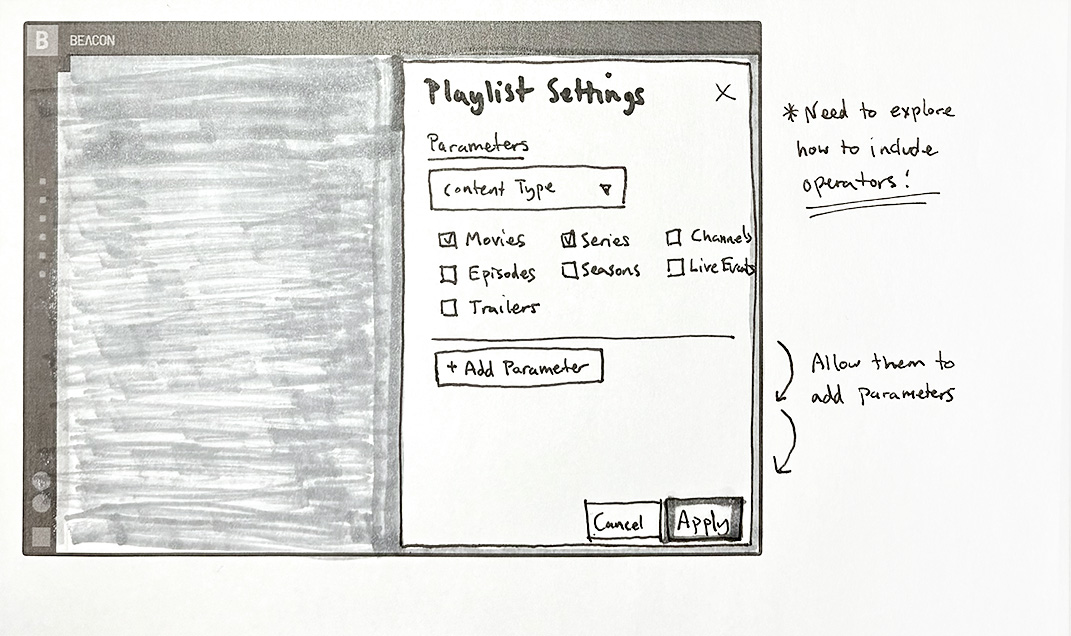 B BEACON
Playlist Settings X
Parameters
Content Type
Movies Series Channels
Episodes Seasons Live Events
Trailers
+ Add Parameter
Cancel Apply
* Need to explore
how to include
operators!
Allow them to
add parameters